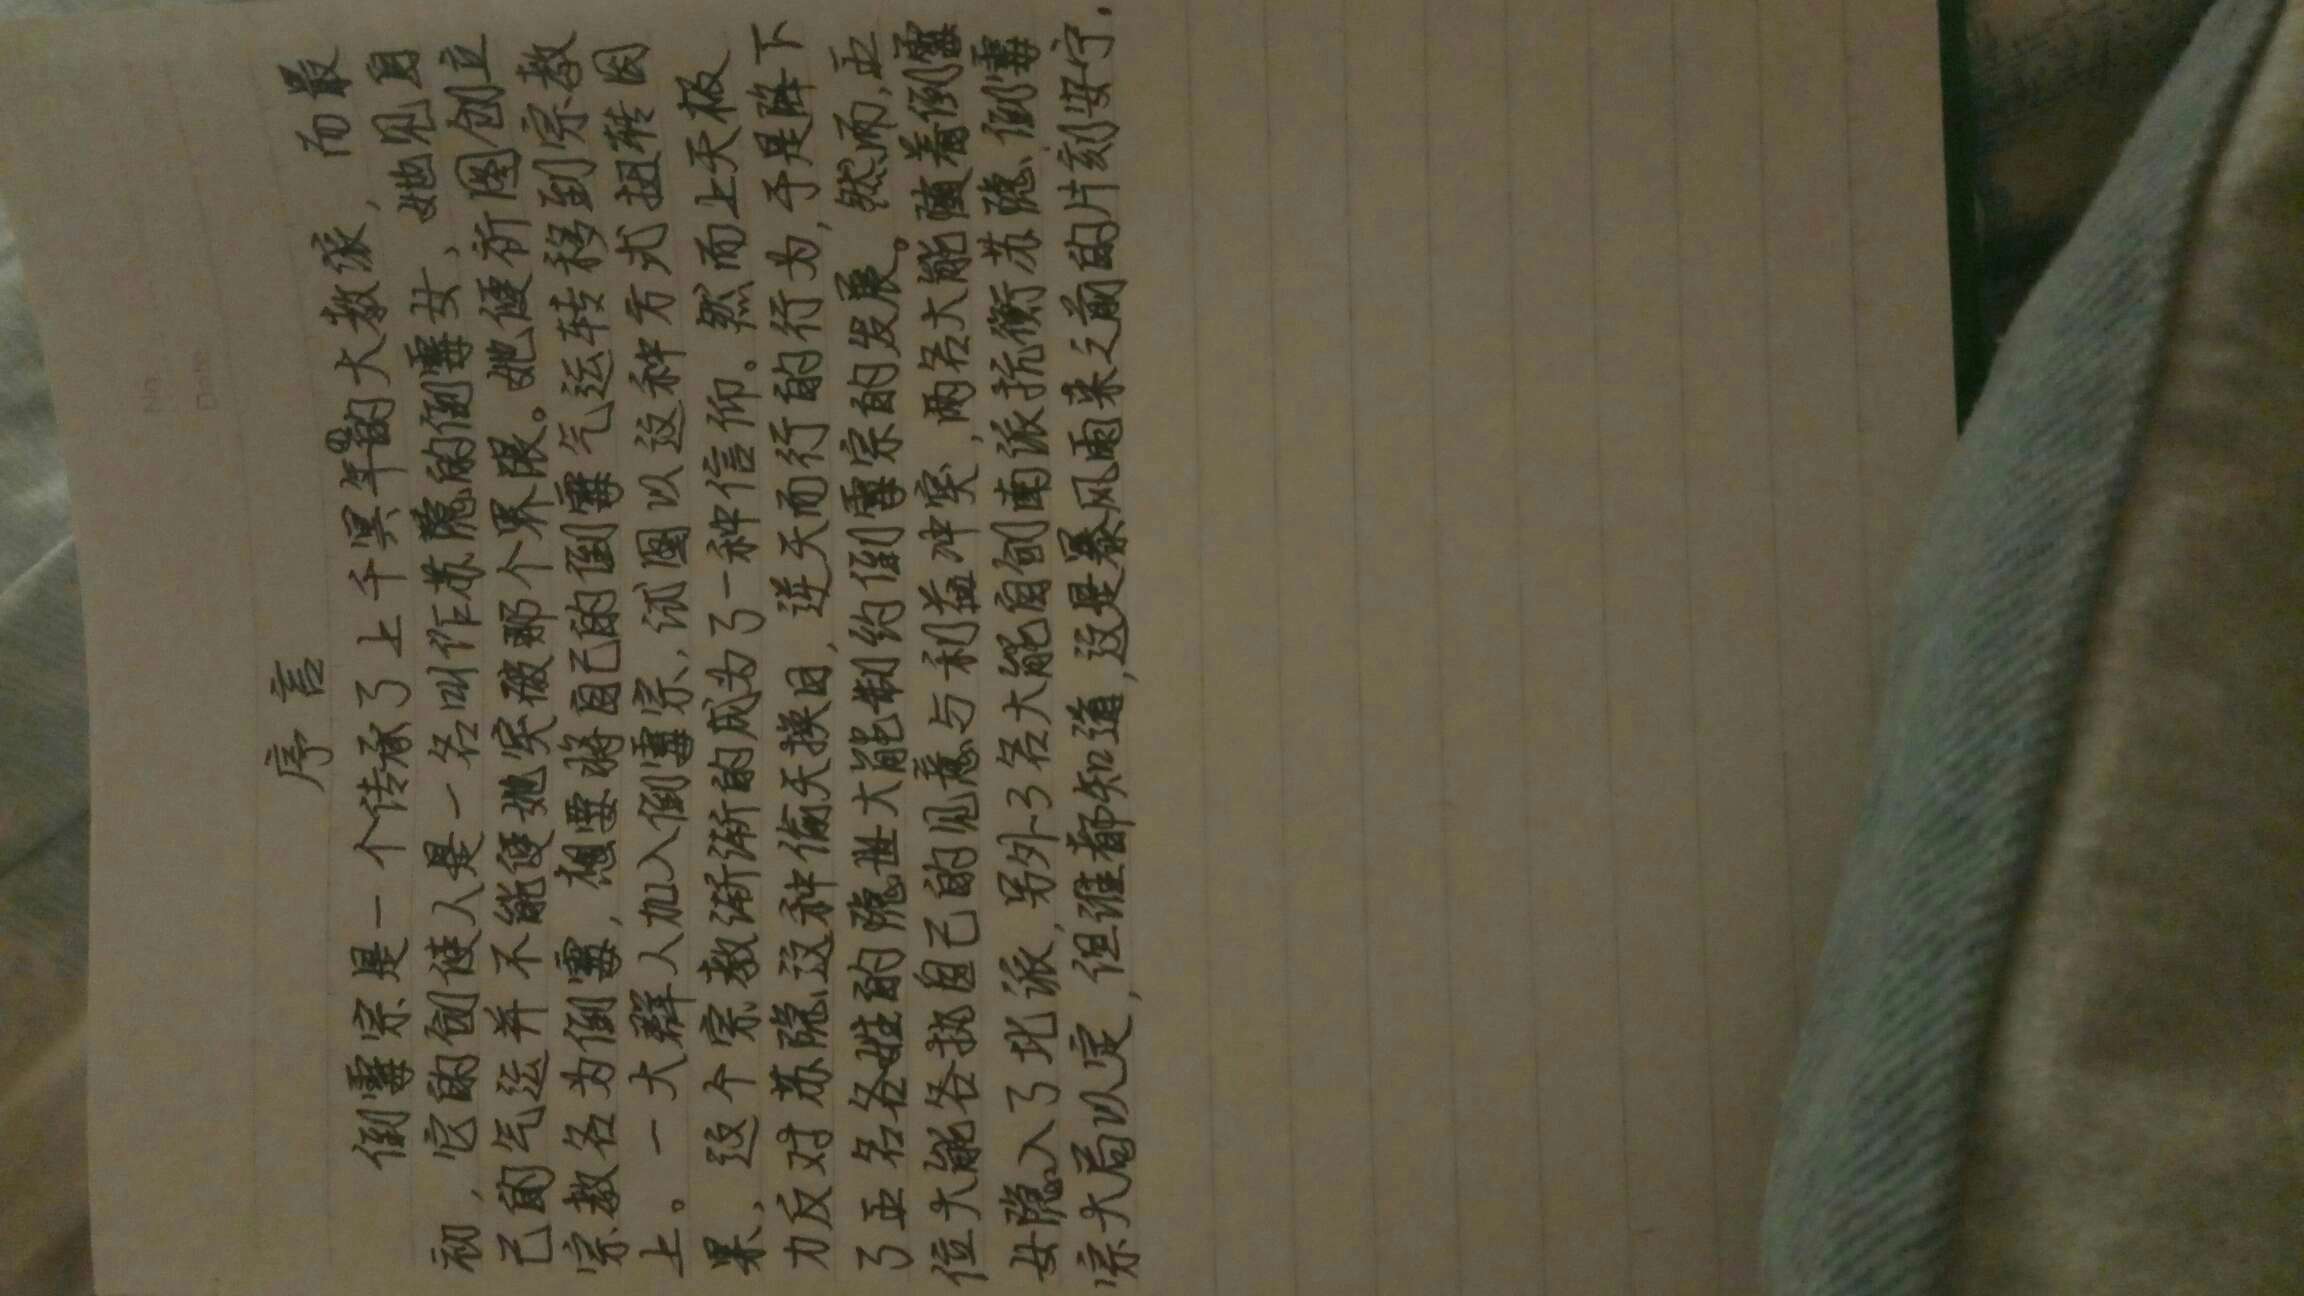 No.
Date
序言
倒霉宗是一个传承了上千冥年①的大教派，而最
初，它的创使人是一名叫作苏隐的倒霉女，她见自
己的气运并不能使她突破那个界限。她便祈图创立
宗教名为倒霉，想要将自己的倒霉气运转移到宗教
上。一大群人加入倒霉宗，试图以这种方式扭转因
果，这个宗教渐渐的成为了一种信仰。然而上天极
力反对苏隐这种偷天换日，逆天而行的行为，于是降下
了五名各姓的隐世大能制约倒霉宗的发展。然而，五
位大能各执自己的见意与利益冲突，两名大能随着倒霉
女隐入了北派，另外3名大能自创南派抗衡苏隐，倒霉
宗大局以定，但谁都知道，这是暴风雨来之前的片刻安宁，